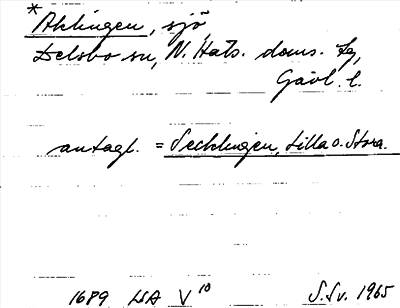 *Aklingen, sjö
Delsbo sn, N. Häls. doms. fg,
Gävl. l.
antagl. = Tecklingen, Lilla o. Stora.
1689 LSA V 10 S.Sv. 1965